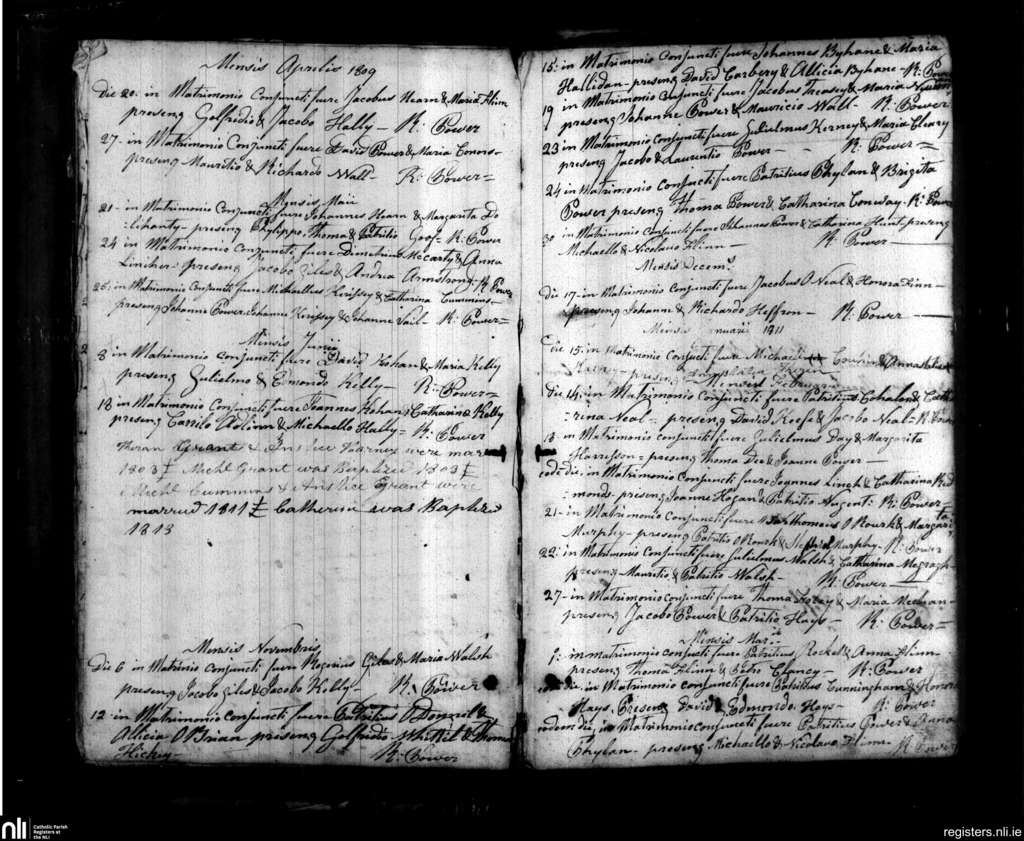 Mensis Aprilis 1809
Die 20: in Matrimonio Conjuncti fuere Jacobus Hearn & Maria
presens Golfredio & Jacobo Hally – R: Power
27 - in Matrimonio Conjuncti fuere David Power & Maria Connors -
presens Mauritio & Richardo Wall - R: Power =
Mensis Maii
21 - in Matrimonio Conjuncti fuere Johannes Hearn & Margarita Do
= lihanty - presens Phylippo, Thoma & Patritio Goof = R: Power
24 in Matrimonio Conjuncti fuere Dimitrius McCarty & Anna
presens Jacobo Giles & Andrea Armstrong - R: Power
26: in Matrimonio Conjuncti fuere Michaellus & Catharina Cummins -
presens Johanne Power, Johanne & Johanne Vail - R: Power =
Mensis Junii
8 in Matrimonio Conjuncti fuere David Kohan & Maria Kelly
presens Gulielmo & Edmondo Kelly — R: Power =
18 in Matrimonio Conjuncti fuere Joannes Kehan & Catharina Kelly
presens & Michaello Hally = R: Power
Grant & were mar
1803 Michl Grant was Baptized 1803
Michl Cummins & Grant were
married 1811 Catherin was Baptized
1813
Mensis Novembris
Die 6 in Matrimonio conjuncti fuere Giles & Maria Walsh
presens Jacobo Giles & Jacobo Kelly — R: Power
12 - in Matrimonio conjuncti fuere Patritius O Donnel &
Allicia O Brian presens Golfredo & Thoma
Hickey — R: Power
15: in Matrimonio Conjuncti fuere Johannes Byhane & Maria
Hallidan - presens David Carbery & Allicia Byhane - R: Power
19 in Matrimonio Conjuncti fuere Jacobus Treasey & Maria
presens Johanne Power & Mauricio Wall - R: Power
23 in Matrimonio Conjuncti fuere Gulielmus Kerney & Maria Cleary
presens Jacobo & Laurentio Power - - R: Power =
24 in Matrimonio conjuncti fuere Patritius Phylan & Brigita
Power presens Thoma Power & Catharina Conway - R: Power
30 in Matrimonio Conjuncti fuere Johannes Power & Catharina Hunt, presens
Michaello & Nicolavo Flinn - R: Power
Mensis Decems
Die 17 - in Matrimonio Conjuncti fuere Jacobus O Neal & Honora Linn -
presens Johanne & Richardo Heffron - R: Power
Mensis Januarii 1811
Die 15: in Matrimonio Conjucti fuere Michael
presens
Mensis Februarii
die 14: in Matrimonio Conjuncti fuere Patritius & Cathe
= rina Neal = presens David Keefe & Jacobo Neal = R: Power
18 - in Matrimonio conjuncti fuere Gulielmus Day & Margarita
Harrisson = presens Thoma Dee & Joanne Power —
eode die, in Matrimonio Conjuncti fuere Joannes Linch & Catharina Red
= monds - presens Joanne Hogan & Patritio Nugent: R: Power
21 - in Matrimonio Conjuncti fuere Barthomeus O Rourk & Margari
Murphy - presens Patritio O Rourk & Murphy - R: Power
22: in Matrimonio Conjuncti fuere Gulielmus Walsh & Catharina Megragh -
presens - Mauritio & Patritio Walsh - R: Power —
27 - in Matrimonio conjuncti fuere Thoma & Maria Meehan -
presens Jacobo Power & Patritio Hays - R: Power =
Mensis Marii
1: in matrimonio conjucti fuere Patritius Rocket & Anna Flinn
presens Thoma Flinn & Petro Clancy - R: Power
eode die in Matrimonio Conjuncti fuere Patritius Cunningham & Honor
Hays, Presens David & Edmondo Hays - R: Power
eodem die, in Matrimonio conjuncti fuere Patritius Power & Anna
Phylan - presens Michaello & Nicolavo Flinn R: Power
nli Catholic Parish
Registers at
the NLI
registers.nli.ie